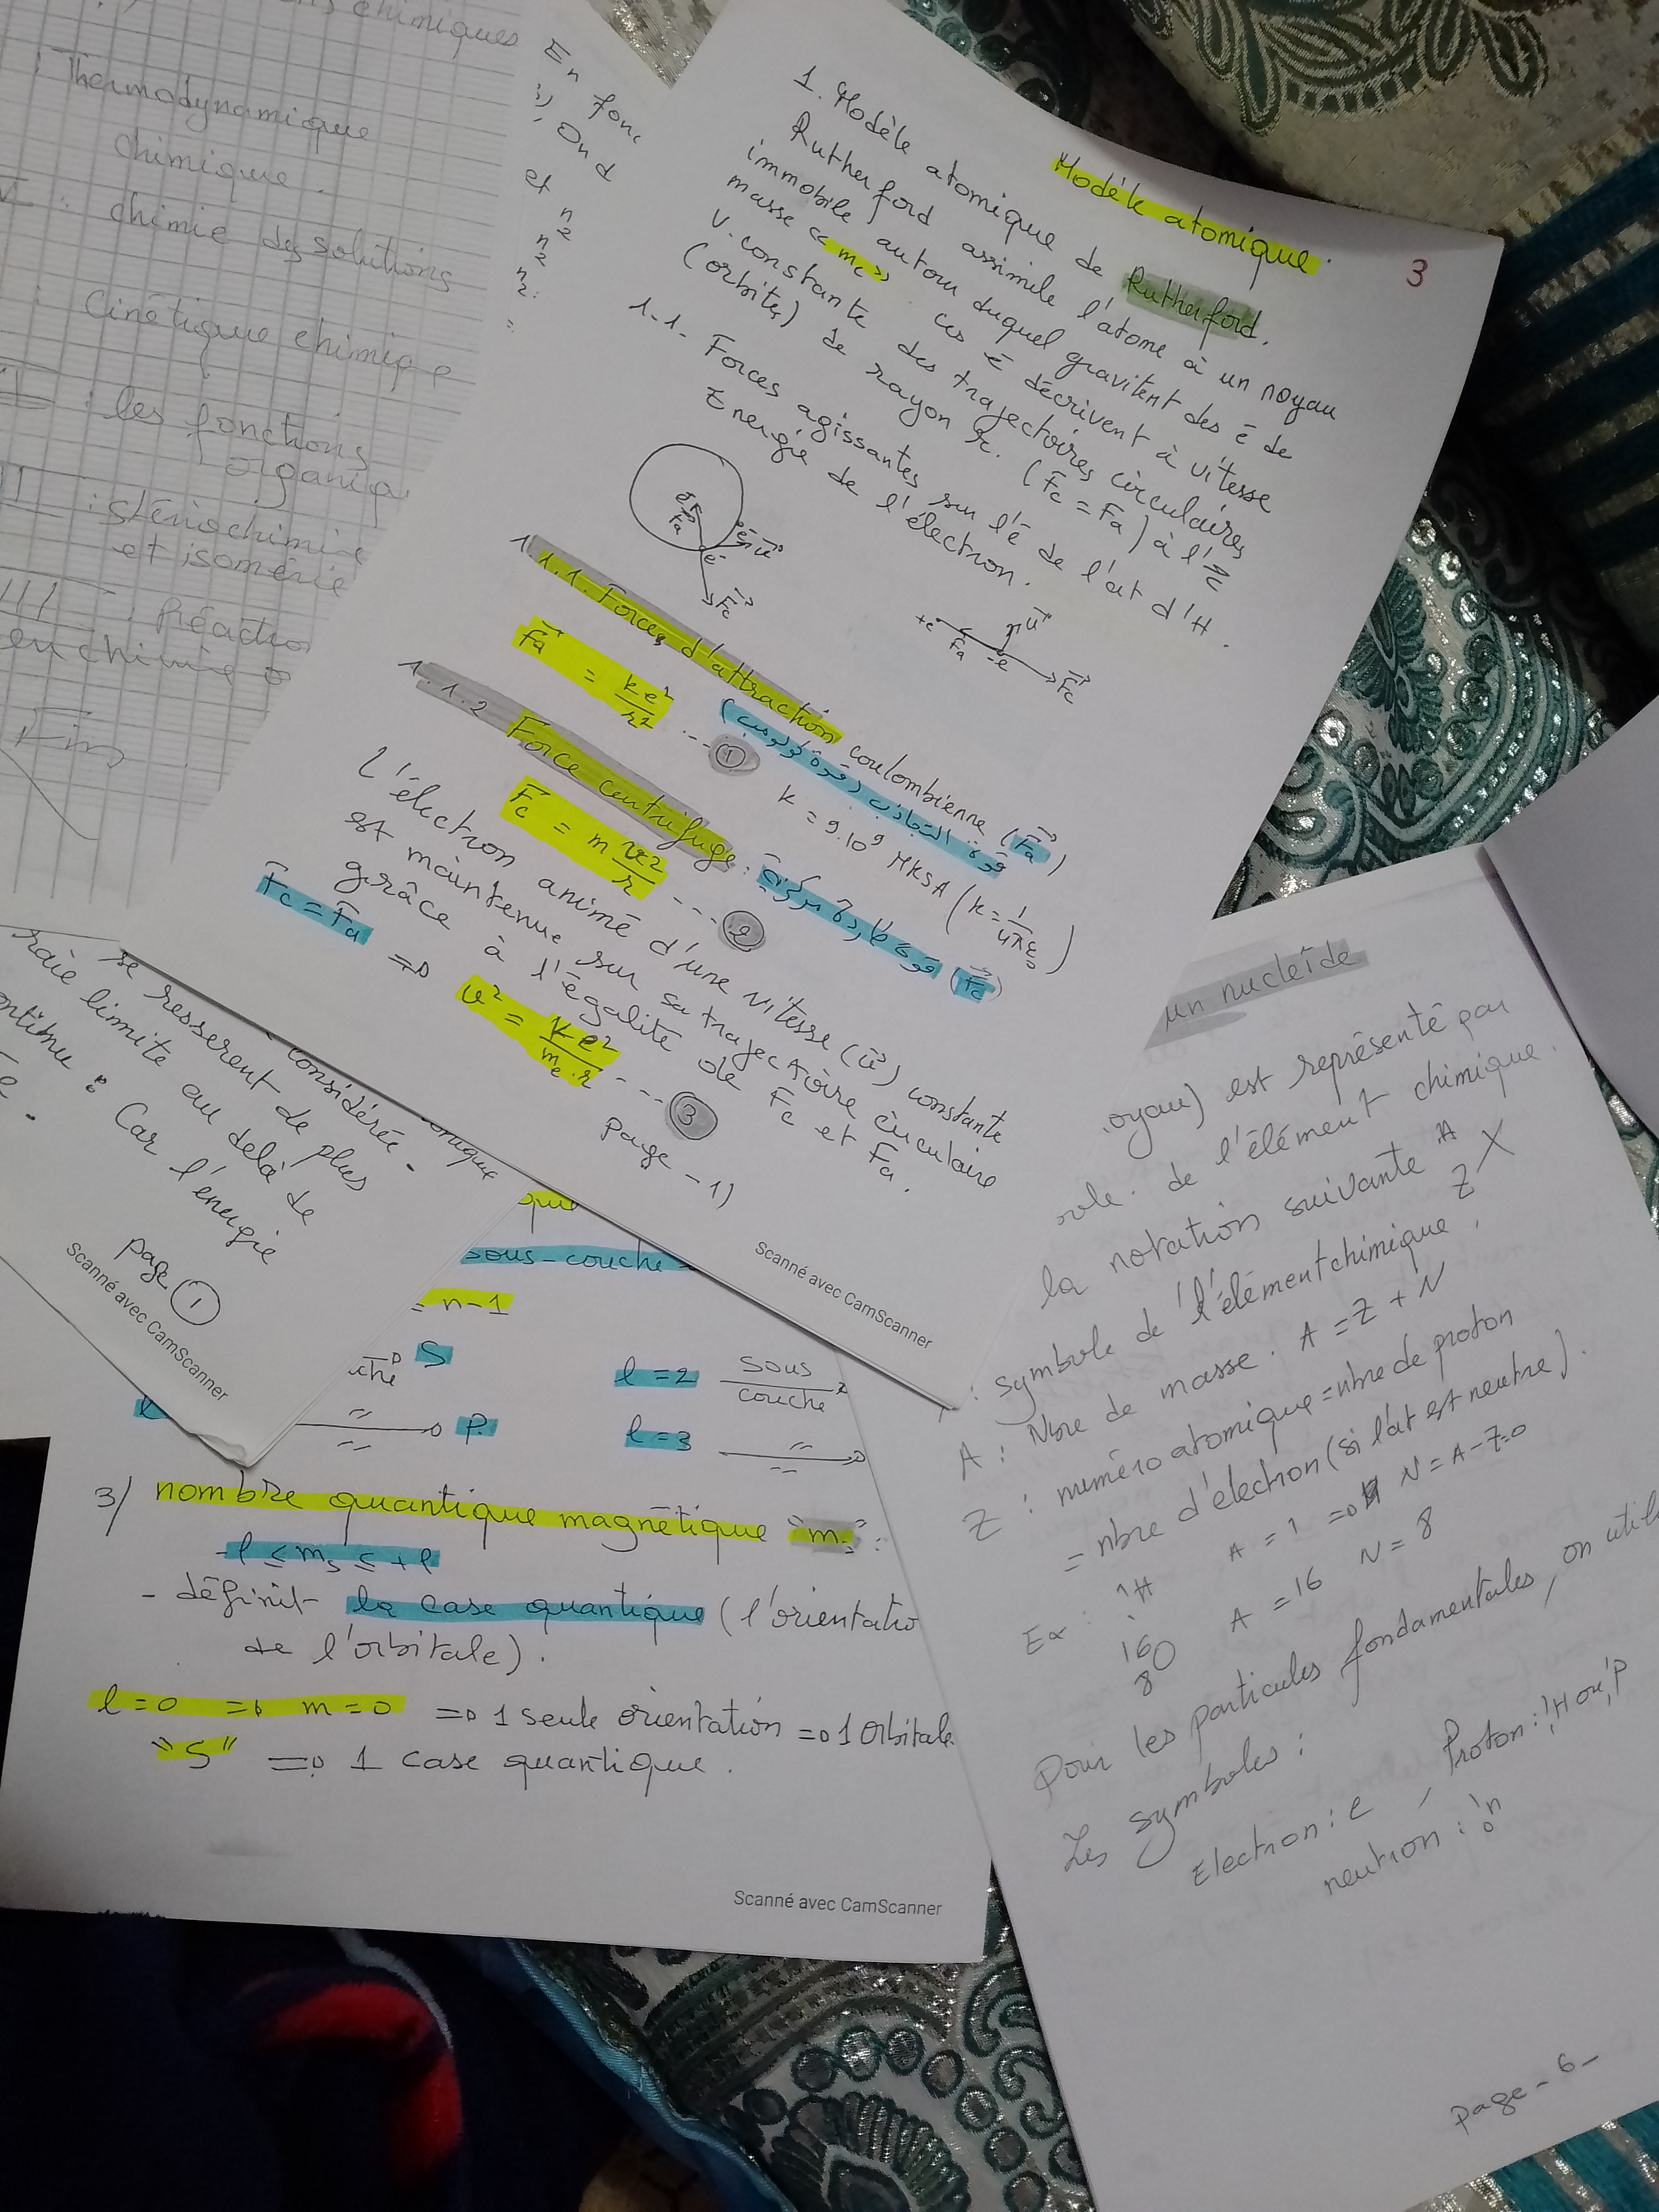 chimiques
: Thermodynamique
chimique.
: chimie des solutions
: Cinétique chimique
: les fonctions
organiq
: stéréochimie
et isomérie
: Réactio
en chimie o
Fin
En fonc
On d
et n²
n²
n²:
3
Modèle atomique.
1. Modèle atomique de Rutherford.
Rutherford assimile l'atome à un noyau
immobile autour duquel gravitent des é de
masse « me » ces é décrivent à vitesse
v. constante des trajectoires circulaires
(orbites) de rayon r. (Fc = Fa) à l'
1-1- Forces agissantes sur l'é de l'at d'H.
Energie de l'électron.
Fa
é
Fc
+e
Fa
-e
Fc
1.1.1. Forces d'attraction coulombienne (Fa)
(قوة التجاذب وقوة كولومب)
Fa = ke²/r² ---- ① k = 9.10⁹ MKSA (k = 1/4πε₀)
1.1.2 Force centrifuge : (Fc)
Fc = m v²/r ---- ②
L'électron animé d'une vitesse (v) constante
est maintenue sur sa trajectoire circulaire
grâce à l'égalité de Fc et Fa.
Fc = Fa => v² = ke²/me.r ---- ③
page - 1)
Scanné avec CamScanner
considérée.
se resserent de plus
raie limite au delà de
ontinue : Car l'énergie
page ①
Scanné avec CamScanner
onique
sous-couche
= n-1
S
l=2 sous couche
P
l=3 —〃—
3/ nombre quantique magnétique "m" :
-l ≤ ms ≤ +l
- définit la case quantique (l'orientatio
de l'orbitale).
l=0 => m=0 => 1 seule orientation => 1 orbitale
"S" => 1 case quantique.
Scanné avec CamScanner
un nucleïde
oyau) est représenté par
bole de l'élément chimique.
la notation suivante ᴬ_Z X
: symbole de l'élément chimique.
A : Nbre de masse. A = Z + N
Z : numéro atomique = nbre de proton
= nbre d'électron (si l'at est neutre).
Ex : ¹₁H A = 1 => N = A-Z=0
¹⁶₈O A = 16 N = 8
Pour les particules fondamentales, on utilis
Les symboles :
Electron : e , Proton : ¹₁H ou ¹₁P
neutron : ¹₀n
page - 6 -